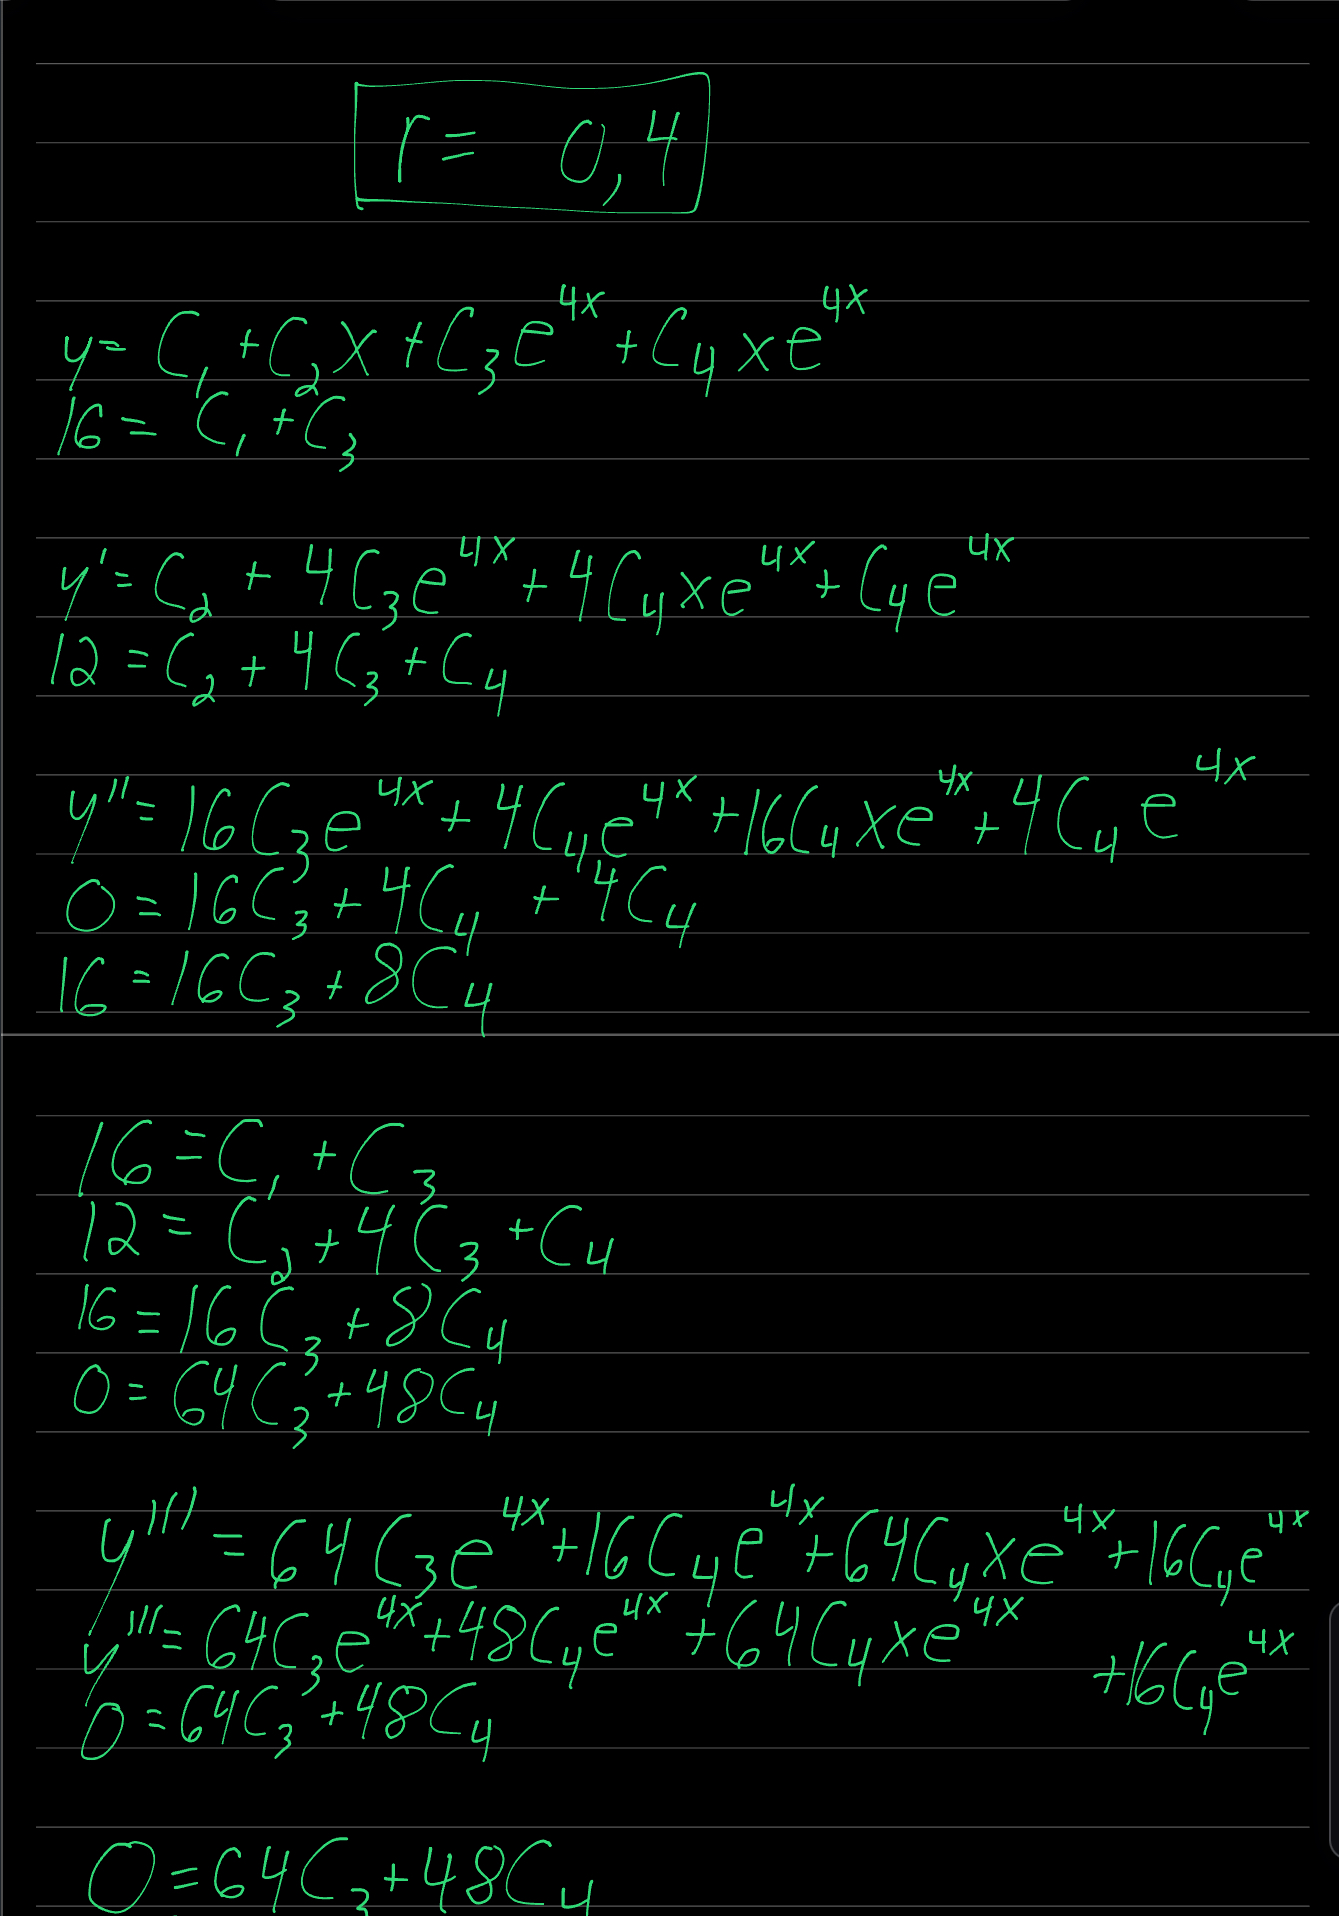 r = 0,4
y = C₁ + C₂x + C₃e^{4x} + C₄xe^{4x}
16 = C₁ + C₃
y' = C₂ + 4C₃e^{4x} + 4C₄xe^{4x} + C₄e^{4x}
12 = C₂ + 4C₃ + C₄
y'' = 16C₃e^{4x} + 4C₄e^{4x} + 16C₄xe^{4x} + 4C₄e^{4x}
0 = 16C₃ + 4C₄ + 4C₄
16 = 16C₃ + 8C₄
16 = C₁ + C₃
12 = C₂ + 4C₃ + C₄
16 = 16C₃ + 8C₄
0 = 64C₃ + 48C₄
y''' = 64C₃e^{4x} + 16C₄e^{4x} + 64C₄xe^{4x} + 16C₄e^{4x}
y''' = 64C₃e^{4x} + 48C₄e^{4x} + 64C₄xe^{4x} + 16C₄e^{4x}
0 = 64C₃ + 48C₄
0 = 64C₃ + 48C₄